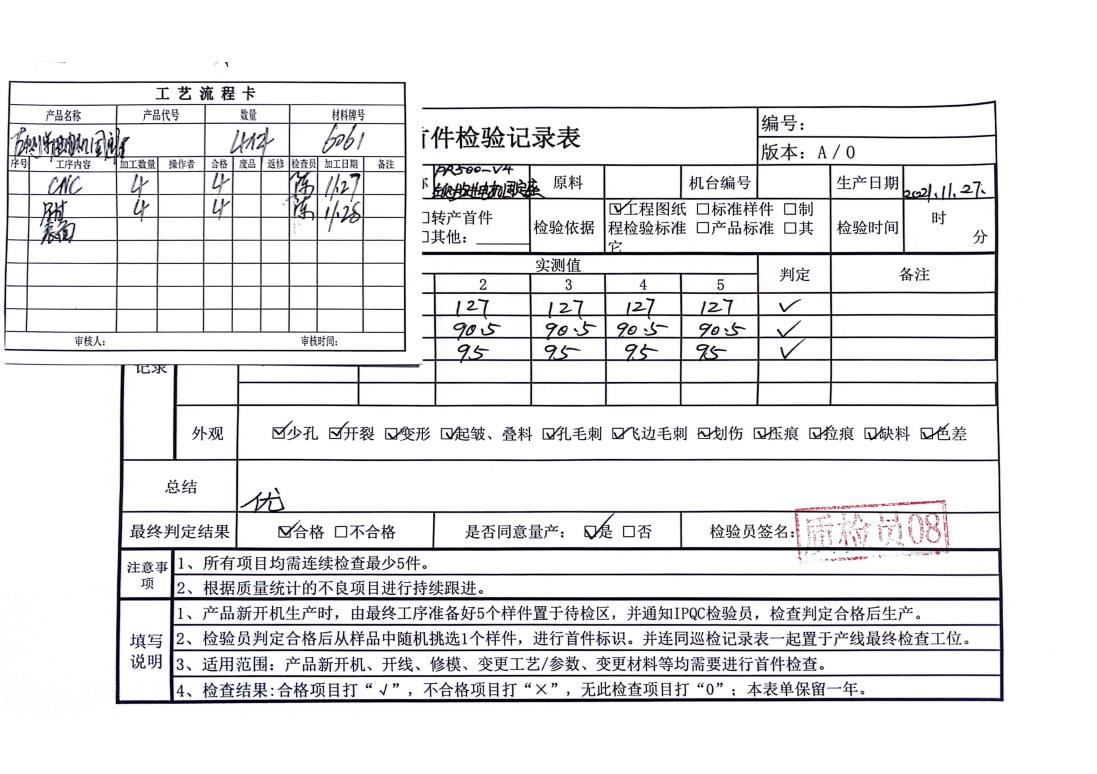 工艺流程卡
产品名称 产品代号 数量 材料牌号
6061
序号 工序内容 加工数量 操作者 合格 废品 返修 检查员 加工日期 备注
CNC 4 4 陈 11.27
4 4 陈 11.28
表面
审核人: 审核时间:
首件检验记录表
编号:
版本: A / 0
PR500-V4
原料 机台编号 生产日期 2021.11.27.
转产首件 检验依据 ☑工程图纸 □标准样件 □制程检验标准 □产品标准 □其它 检验时间 时 分
□其他:
实测值 判定 备注
2 3 4 5
127 127 127 127 ✓
90.5 90.5 90.5 90.5 ✓
95 95 95 95 ✓
记录
外观 ☑少孔 ☑开裂 ☑变形 ☑起皱、叠料 ☑孔毛刺 ☑飞边毛刺 ☑划伤 ☑压痕 ☑拉痕 ☑缺料 ☑色差
总结 优
最终判定结果 ☑合格 □不合格 是否同意量产: ☑是 □否 检验员签名: 质检员08
注意事项
1、所有项目均需连续检查最少5件。
2、根据质量统计的不良项目进行持续跟进。
填写说明
1、产品新开机生产时，由最终工序准备好5个样件置于待检区，并通知IPQC检验员，检查判定合格后生产。
2、检验员判定合格后从样品中随机挑选1个样件，进行首件标识。并连同巡检记录表一起置于产线最终检查工位。
3、适用范围: 产品新开机、开线、修模、变更工艺/参数、变更材料等均需要进行首件检查。
4、检查结果:合格项目打“√”，不合格项目打“×”，无此检查项目打“0”；本表单保留一年。